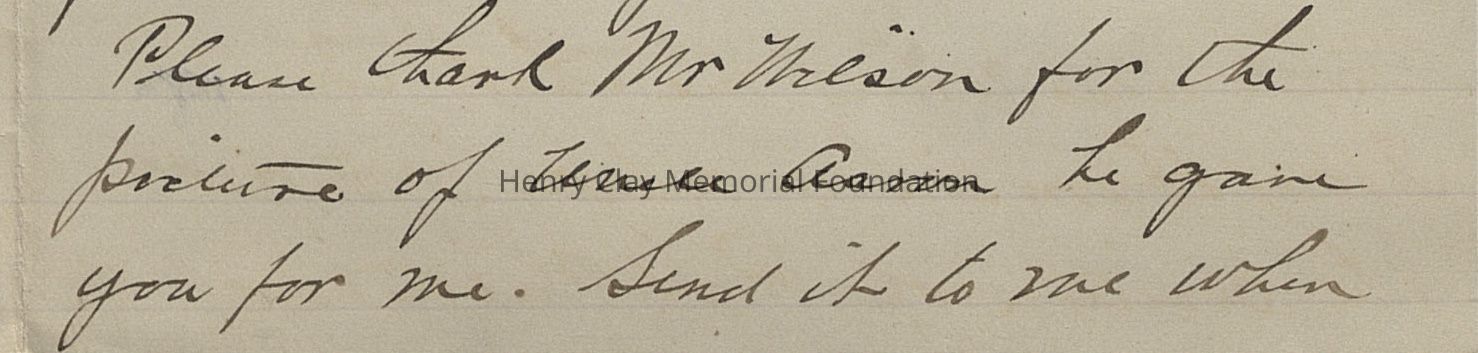 Please thank Mr Wilson for the
picture of Uncle Aaron he gave
Henry Clay Memorial Foundation
you for me. Send it to me when